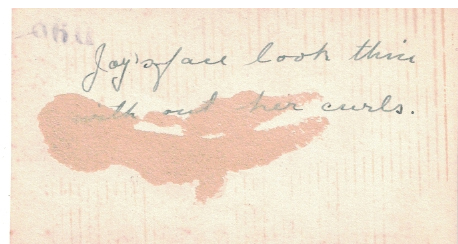 Joy's face look thin
with out her curls.